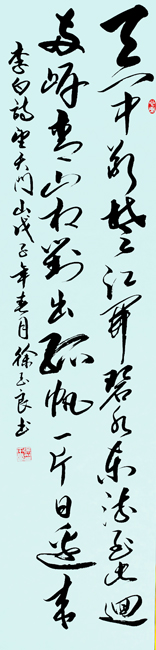 天门中断楚江開碧水東流至此迴
兩岸青山相對出孤帆一片日邊来
李白詩望天门山戊子年春月徐玉良书